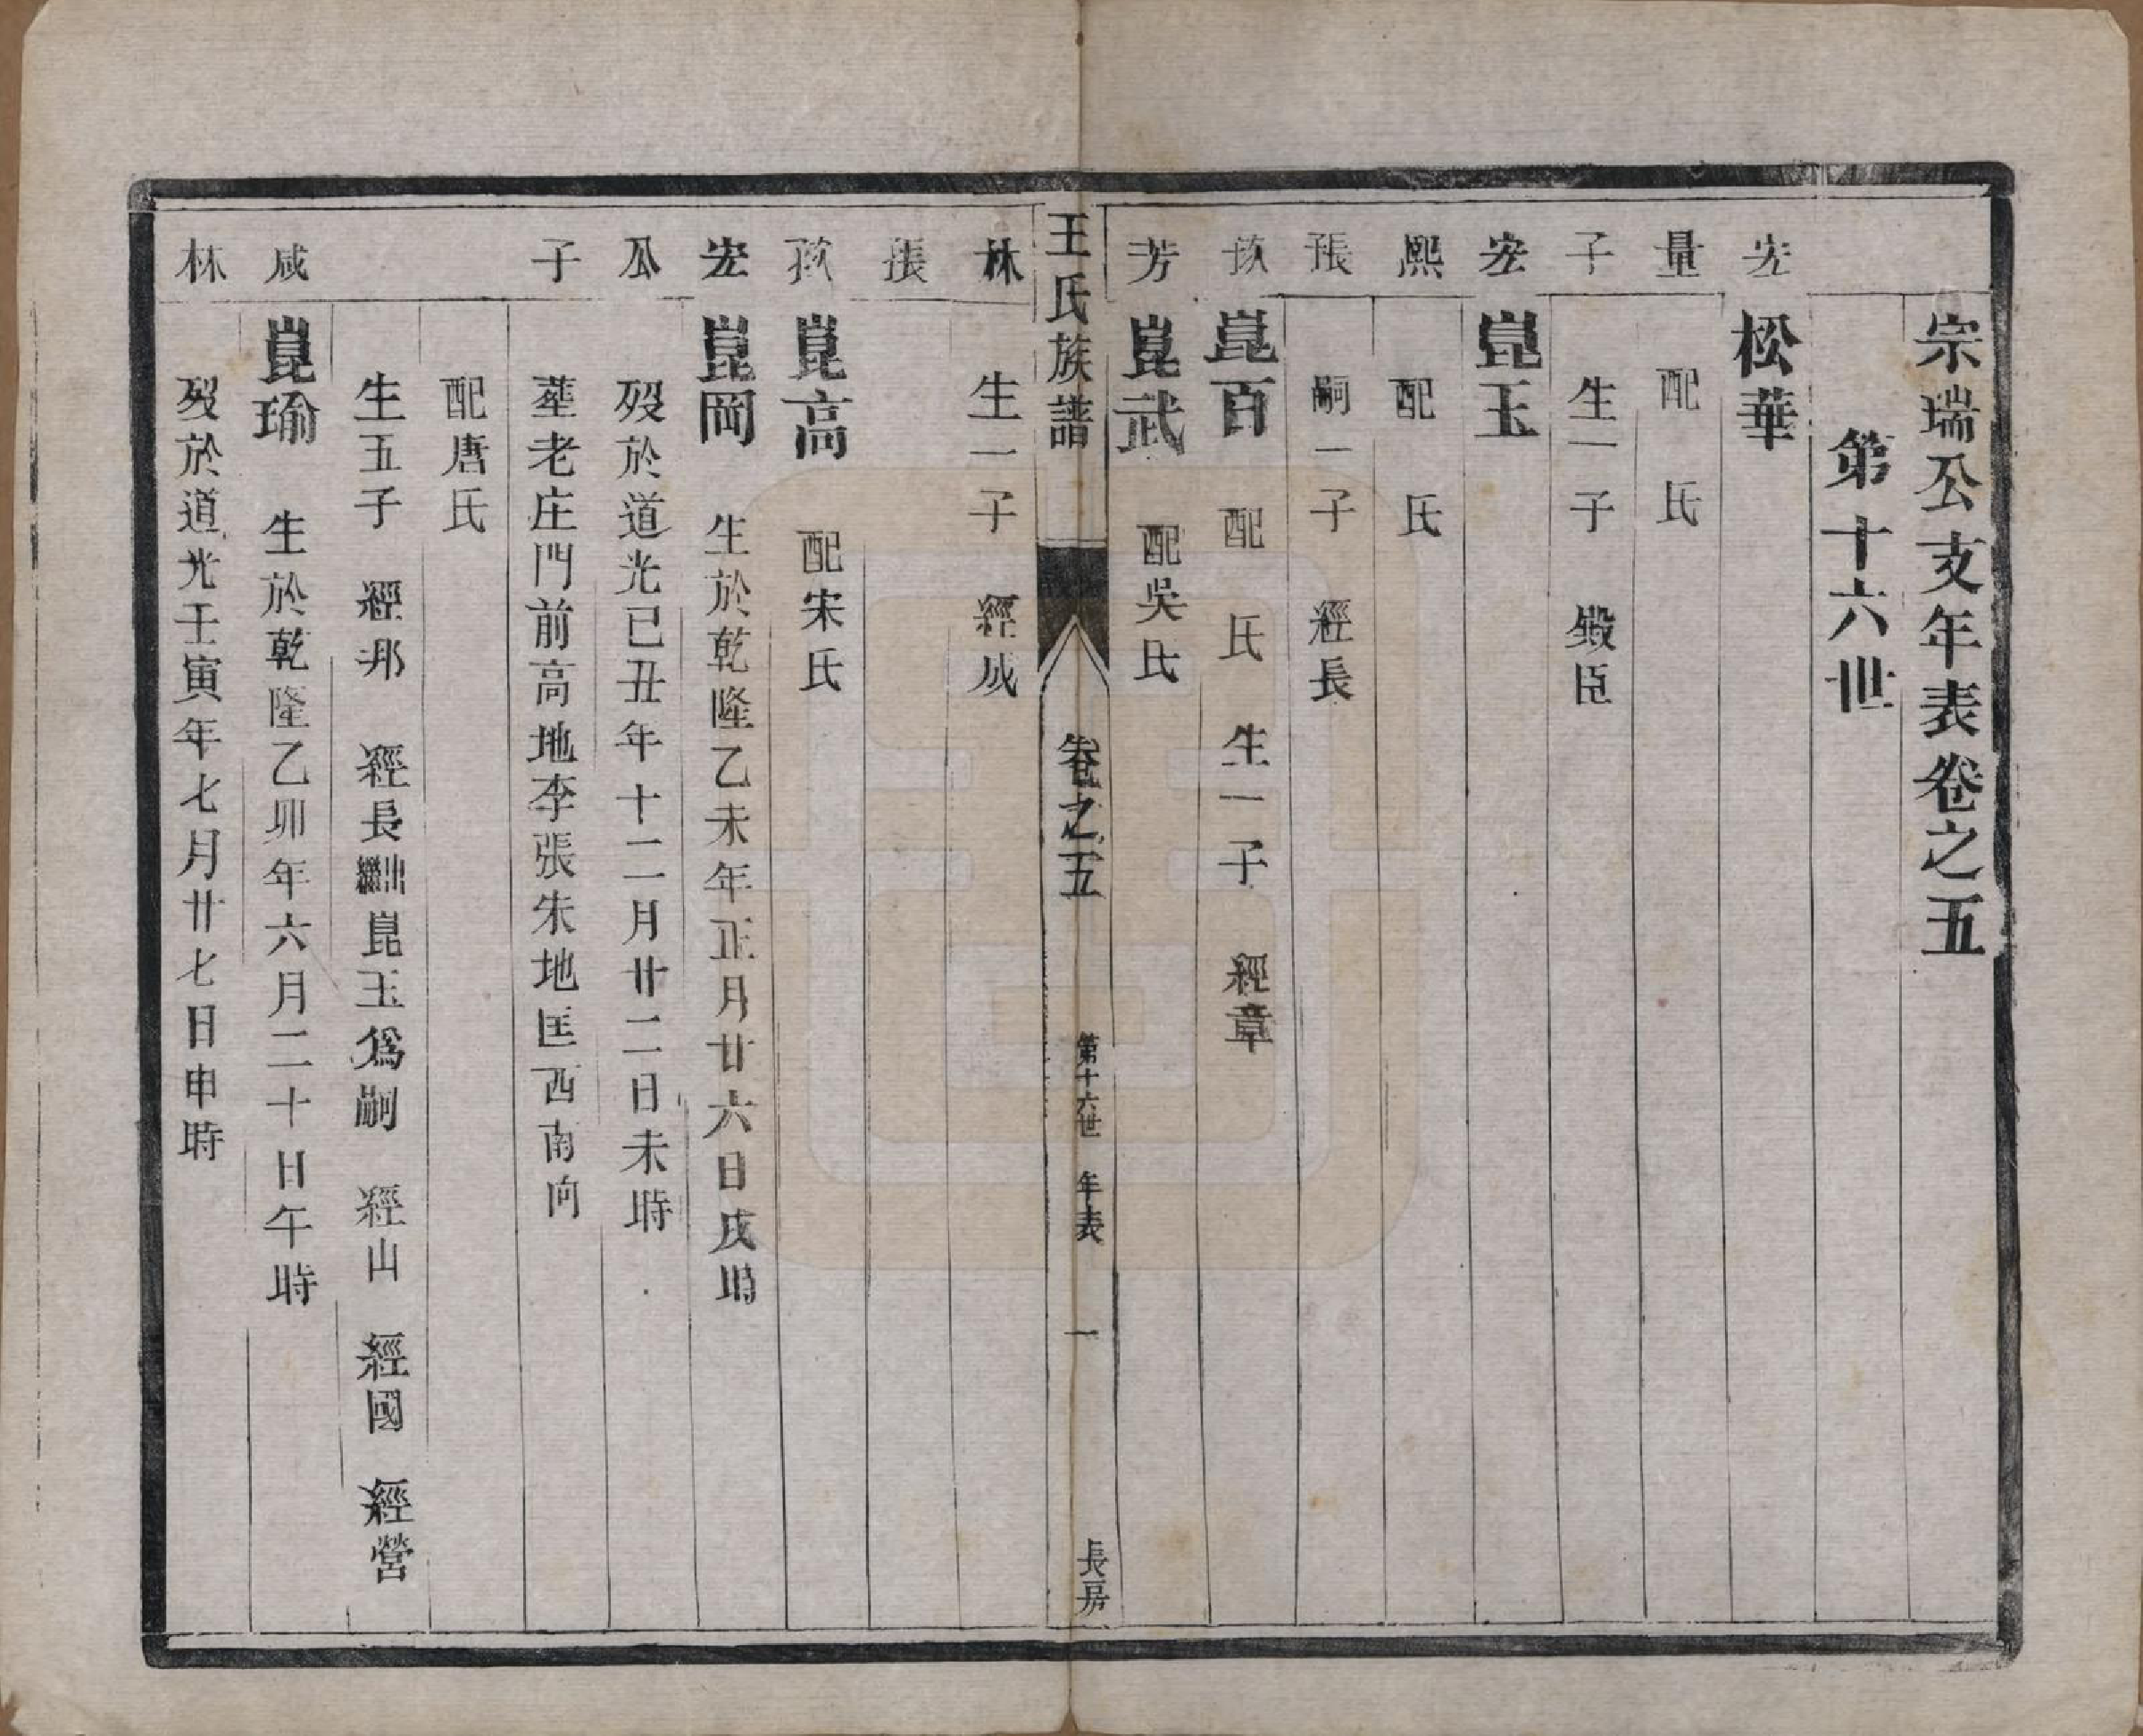 宗瑞公支年表卷之五
第十六世
宏 松華
量 配 氏
子 生一子 殿臣
宏 崑玉
熙 配 氏
張 嗣一子 經長
崑百 配 氏 生一子 經章
芳 崑武 配吳氏
王氏族譜 卷之五 第十六世 年表 一 長房
林 生一子 經成
張
崑高 配宋氏
宏 崑岡 生於乾隆乙未年正月廿六日戌時
瓜 歿於道光己丑年十二月廿二日未時
子 塟老庄門前高地李張朱地匡西南向
配唐氏
生五子 經邦 經長出繼崑玉為嗣 經山 經國 經營
咸 崑瑜 生於乾隆乙卯年六月二十日午時
林 歿於道光壬寅年七月廿七日申時